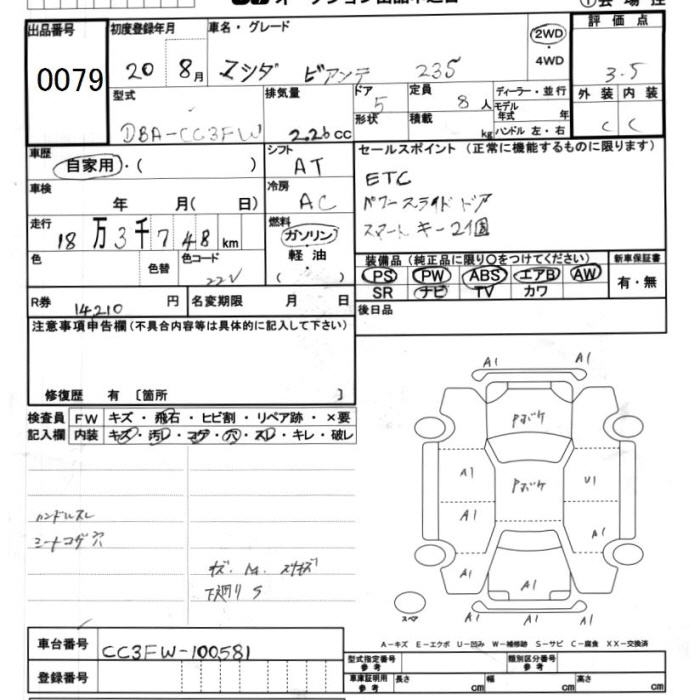 出品番号 初度登録年月 車名・グレード 2WD 評価点
0079 20 8月 マツダ ビアンテ 23S ・ 4WD 3.5
型式 排気量 ドア 5 定員 8人 ディーラー・並行 外装 内装
DBA-CC3FW 2.26cc 形状 積載 kg モデル年式 年 ハンドル左・右 C C
車歴 自家用・( ) シフト AT セールスポイント (正常に機能するものに限ります)
車検 年 月( 日) 冷房 AC ETC
パワースライドドア
スマートキー2個
走行 18万3千748km 燃料 ガソリン・軽油・( )
色 色替 色コード 22V
装備品 (純正品に限り○をつけてください) 新車保証書
PS PW ABS エアB AW 有・無
SR ナビ TV カワ
R券 14,210円 名変期限 月 日 後日品
注意事項申告欄(不具合内容等は具体的に記入して下さい)
修復歴 有 〔箇所 〕
検査員記入欄 FW キズ・飛石・ヒビ割・リペア跡・×要
内装 キズ・汚レ・コゲ・穴・スレ・キレ・破レ
ハンドルスレ
シートコゲ穴
下廻りS
A1 A1
Pボケ
A1 Pボケ U1
A1 A1
A1 A1 A1
A1 A1
スペア
A-キズ E-エクボ U-凹み W-補修跡 S-サビ C-腐食 XX-交換済
車台番号 CC3FW-100581
型式指定番号参考 類別区分番号参考
登録番号 車庫証明用参考 長さ cm 幅 cm 高さ cm